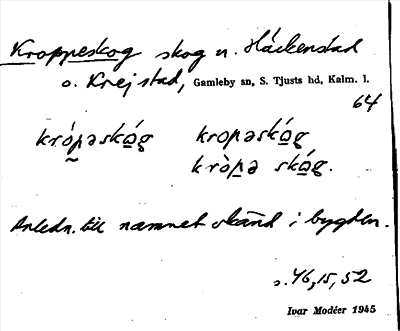 Kroppeskog skog n. Häckenstad
o. Krejstad, Gamleby sn, S. Tjusts hd, Kalm. l.
64
krópəskóg kropəskóg
kròpə skóg.
Anledn. till namnet okänd i bygden.
s. 46, 15, 52
Ivar Modéer 1945